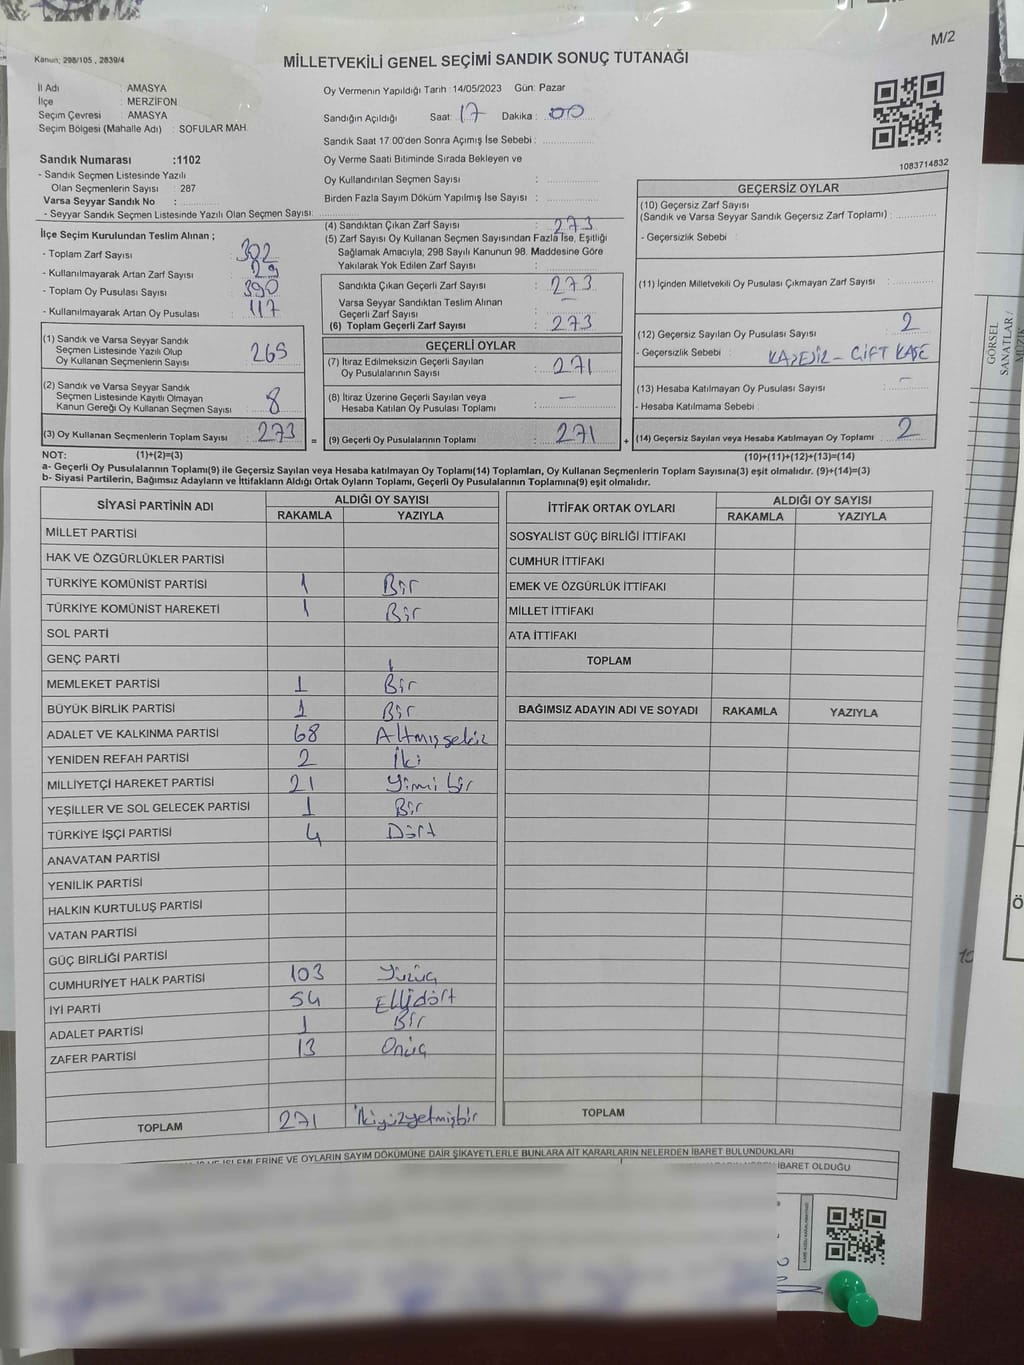 M/2
Kanun; 298/105 , 2839/4
MİLLETVEKİLİ GENEL SEÇİMİ SANDIK SONUÇ TUTANAĞI
İl Adı : AMASYA
İlçe : MERZİFON
Seçim Çevresi : AMASYA
Seçim Bölgesi (Mahalle Adı) : SOFULAR MAH.
Oy Vermenin Yapıldığı Tarih :14/05/2023 Gün: Pazar
Sandığın Açıldığı Saat: 17 Dakika : 00
Sandık Saat 17:00'den Sonra Açımış İse Sebebi :
Sandık Numarası :1102
- Sandık Seçmen Listesinde Yazılı
Olan Seçmenlerin Sayısı : 287
Varsa Seyyar Sandık No :
- Seyyar Sandık Seçmen Listesinde Yazılı Olan Seçmen Sayısı:
Oy Verme Saati Bitiminde Sırada Bekleyen ve
Oy Kullandırılan Seçmen Sayısı :
Birden Fazla Sayım Döküm Yapılmış İse Sayısı :
1083714832
İlçe Seçim Kurulundan Teslim Alınan ;
- Toplam Zarf Sayısı : 302
- Kullanılmayarak Artan Zarf Sayısı : 29
- Toplam Oy Pusulası Sayısı : 390
- Kullanılmayarak Artan Oy Pusulası : 117
(1) Sandık ve Varsa Seyyar Sandık
Seçmen Listesinde Yazılı Olup
Oy Kullanan Seçmenlerin Sayısı : 265
(2) Sandık ve Varsa Seyyar Sandık
Seçmen Listesinde Kayıtlı Olmayan
Kanun Gereği Oy Kullanan Seçmen Sayısı : 8
(3) Oy Kullanan Seçmenlerin Toplam Sayısı : 273 =
(4) Sandıktan Çıkan Zarf Sayısı : 273
(5) Zarf Sayısı Oy Kullanan Seçmen Sayısından Fazla İse, Eşitliği
Sağlamak Amacıyla, 298 Sayılı Kanunun 98. Maddesine Göre
Yakılarak Yok Edilen Zarf Sayısı :
Sandıkta Çıkan Geçerli Zarf Sayısı : 273
Varsa Seyyar Sandıktan Teslim Alınan
Geçerli Zarf Sayısı : —
(6) Toplam Geçerli Zarf Sayısı : 273
GEÇERLİ OYLAR
(7) İtiraz Edilmeksizin Geçerli Sayılan
Oy Pusulalarının Sayısı : 271
(8) İtiraz Üzerine Geçerli Sayılan veya
Hesaba Katılan Oy Pusulası Toplamı : —
(9) Geçerli Oy Pusulalarının Toplamı : 271 +
GEÇERSİZ OYLAR
(10) Geçersiz Zarf Sayısı
(Sandık ve Varsa Seyyar Sandık Geçersiz Zarf Toplamı) :
- Geçersizlik Sebebi :
(11) İçinden Milletvekili Oy Pusulası Çıkmayan Zarf Sayısı :
(12) Geçersiz Sayılan Oy Pusulası Sayısı : 2
- Geçersizlik Sebebi : KAŞESİZ - ÇİFT KAŞE
(13) Hesaba Katılmayan Oy Pusulası Sayısı : —
- Hesaba Katılmama Sebebi :
(14) Geçersiz Sayılan veya Hesaba Katılmayan Oy Toplamı : 2
NOT: (1)+(2)=(3) (10)+(11)+(12)+(13)=(14)
a- Geçerli Oy Pusulalarının Toplamı(9) ile Geçersiz Sayılan veya Hesaba katılmayan Oy Toplamı(14) Toplamları, Oy Kullanan Seçmenlerin Toplam Sayısına(3) eşit olmalıdır. (9)+(14)=(3)
b- Siyasi Partilerin, Bağımsız Adayların ve İttifakların Aldığı Ortak Oyların Toplamı, Geçerli Oy Pusulalarının Toplamına(9) eşit olmalıdır.
SİYASİ PARTİNİN ADI ALDIĞI OY SAYISI
RAKAMLA YAZIYLA
MİLLET PARTİSİ
HAK VE ÖZGÜRLÜKLER PARTİSİ
TÜRKİYE KOMÜNİST PARTİSİ 1 Bir
TÜRKİYE KOMÜNİST HAREKETİ 1 Bir
SOL PARTİ
GENÇ PARTİ
MEMLEKET PARTİSİ 1 Bir
BÜYÜK BİRLİK PARTİSİ 1 Bir
ADALET VE KALKINMA PARTİSİ 68 Altmışsekiz
YENİDEN REFAH PARTİSİ 2 İki
MİLLİYETÇİ HAREKET PARTİSİ 21 Yimi bir
YEŞİLLER VE SOL GELECEK PARTİSİ 1 Bir
TÜRKİYE İŞÇİ PARTİSİ 4 Dört
ANAVATAN PARTİSİ
YENİLİK PARTİSİ
HALKIN KURTULUŞ PARTİSİ
VATAN PARTİSİ
GÜÇ BİRLİĞİ PARTİSİ
CUMHURİYET HALK PARTİSİ 103 Yüzüç
İYİ PARTİ 54 Ellidört
ADALET PARTİSİ 1 Bir
ZAFER PARTİSİ 13 Onüç
TOPLAM 271 İkiyüzyetmişbir
İTTİFAK ORTAK OYLARI ALDIĞI OY SAYISI
RAKAMLA YAZIYLA
SOSYALİST GÜÇ BİRLİĞİ İTTİFAKI
CUMHUR İTTİFAKI
EMEK VE ÖZGÜRLÜK İTTİFAKI
MİLLET İTTİFAKI
ATA İTTİFAKI
TOPLAM
BAĞIMSIZ ADAYIN ADI VE SOYADI RAKAMLA YAZIYLA
TOPLAM
VE OYLARIN SAYIM DÖKÜMÜNE DAİR ŞİKAYETLERLE BUNLARA AİT KARARLARIN NELERDEN İBARET BULUNDUKLARI
İBARET OLDUĞU
GÖRSEL
SANATLAR /
MÜZİK